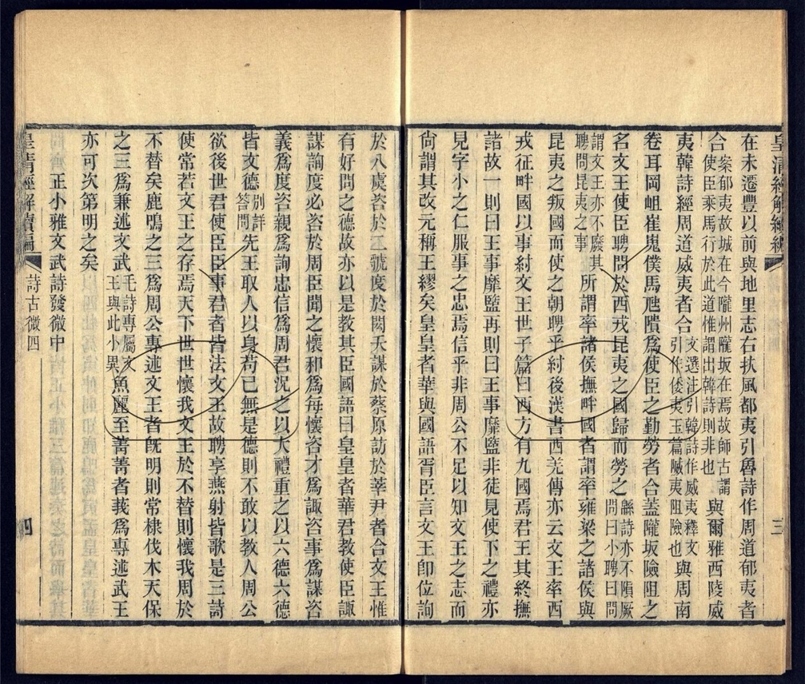 皇清經解續編
在未遷豐以前與地里志右扶風郁夷引魯詩作周道郁夷者
合案郁夷故城在今隴州隴坂在焉故師古謂使臣乘馬行於此道惟謂出韓詩則非也與爾雅西陵威
夷韓詩經周道威夷者合文選注引韓詩作威夷釋文引作倭夷玉篇隇夷阻險也與周南
卷耳岡岨崔嵬僕馬虺隤爲使臣之勤勞者合蓋隴坂險阻之
名文王使臣聘問於西戎昆夷之國歸而勞之緜詩亦不隕厥問曰小聘曰問
謂文王亦不廢其聘問昆夷之事所謂率諸侯撫畔國者謂率雍梁之諸侯與
昆夷之叛國而使之朝聘乎紂後漢書西羌傳亦云文王率西
戎征畔國以事紂文王世子篇曰西方有九國焉君王其終撫
諸故一則曰王事靡盬再則曰王事靡盬非徒見使下之禮亦
見字小之仁服事之忠焉信乎非周公不足以知文王之志而
尙謂其改元稱王繆矣皇皇者華與國語胥臣言文王卽位詢
三
於八虞咨於二虢度於閎夭謀於蔡原訪於莘尹者合文王惟
有好問之德故亦以是教其臣國語曰皇皇者華君教使臣諏
謀詢度必咨於周臣聞之懷和爲每懷咨才爲諏咨事爲謀咨
義爲度咨親爲詢忠信爲周君況之以大禮重之以六德六德
皆文德別詳答問先王取人以身苟已無是德則不敢以教人周公
欲後世君使臣臣事君者皆法文王故聘享燕射皆歌是三詩
使常若文王之存焉天下世世懷我文王於不替則懷我周於
不替矣鹿鳴之三爲周公專述文王者旣明則常棣伐木天保
之三爲兼述文武毛詩專屬文王與此小異魚麗至菁菁者莪爲專述武王
亦可次第明之矣
正小雅文武詩發微中
皇清經解續編
詩古微四
四